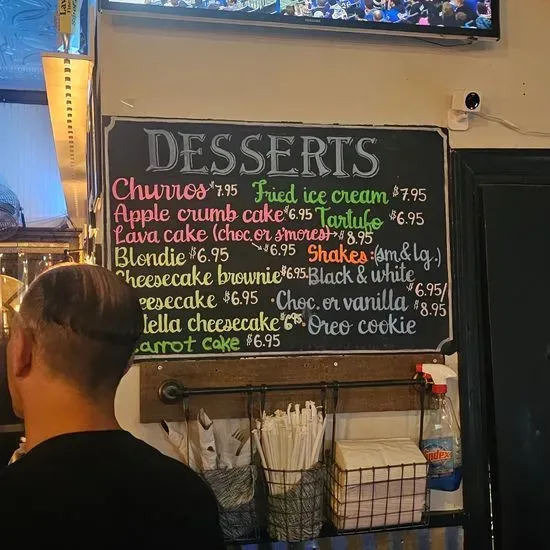 DESSERTS
Churros $7.95
Fried ice cream $7.95
Apple crumb cake $6.95
Tartufo $6.95
Lava cake (choc. or s'mores) → $8.95
→ $6.95
Blondie $6.95
Shakes: (sm & lg.)
Cheesecake brownie $6.95
Black & white
$6.95/
$8.95
eesecake $6.95
• Choc. or vanilla
ella cheesecake $6.95
• Oreo cookie
arrot cake $6.95
Windex